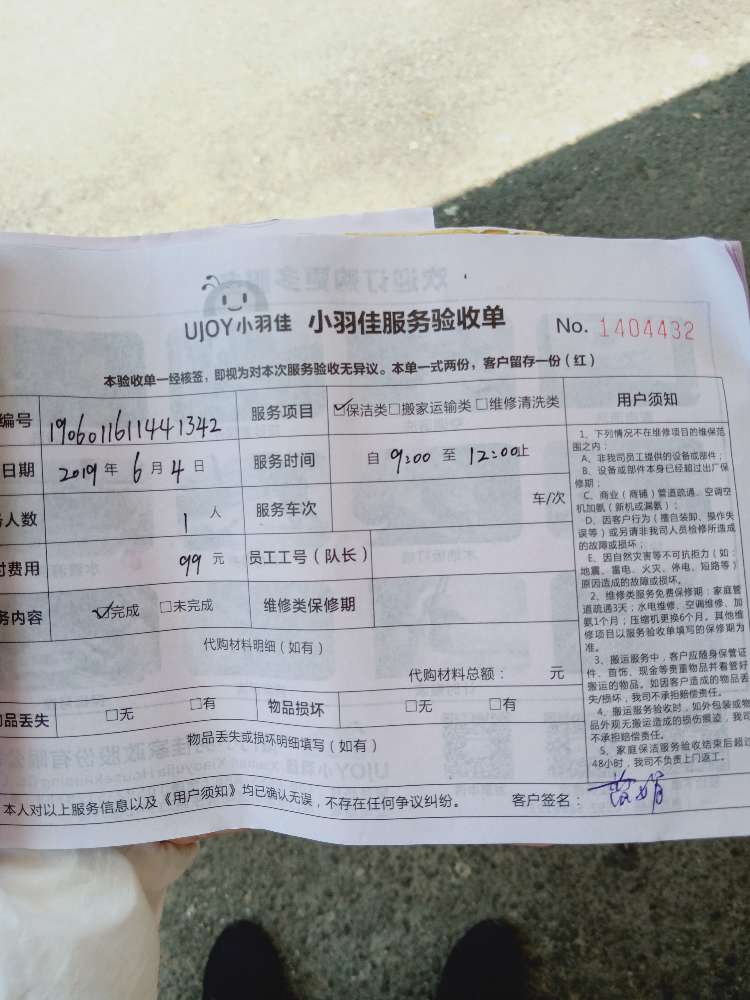 UJOY小羽佳 小羽佳服务验收单 No. 1404432
本验收单一经核签，即视为对本次服务验收无异议。本单一式两份，客户留存一份（红）
编号 190601161144​1342 服务项目 ☑保洁类□搬家运输类□维修清洗类 用户须知
日期 2019年6月4日 服务时间 自 9:00 至 12:00止
人数 1 人 服务车次 车/次
费用 99 元 员工工号（队长）
务内容 ☑完成 □未完成 维修类保修期
代购材料明细（如有）
代购材料总额： 元
品丢失 □无 □有 物品损坏 □无 □有
物品丢失或损坏明细填写（如有）
本人对以上服务信息以及《用户须知》均已确认无误，不存在任何争议纠纷。 客户签名：
1、下列情况不在维修项目的维保范
围之内：
A、非我司员工提供的设备或部件；
B、设备或部件本身已经超过出厂保
修期；
C、商业（商铺）管道疏通、空调空
机加氨（新机或漏氨）；
D、因客户行为（擅自装卸、操作失
误等）或另请非我司人员检修所造成
的故障或损坏；
E、因自然灾害等不可抗拒力（如：
地震、雷电、火灾、停电、短路等）
原因造成的故障或损坏。
2、维修类服务免费保修期：家庭管
道疏通3天；水电维修、空调维修、加
氨1个月；压缩机更换6个月。其他维
修项目以服务验收单填写的保修期为
准。
3、搬运服务中，客户应随身保管证
件、首饰、现金等贵重物品并看管好
搬运的物品。如因客户造成的物品丢
失/损坏，我司不承担赔偿责任。
4、搬运服务验收时，如外包装或物
品外观无搬运造成的损伤痕迹，我司
不承担赔偿责任。
5、家庭保洁服务验收结束后超过
48小时，我司不负责上门返工。